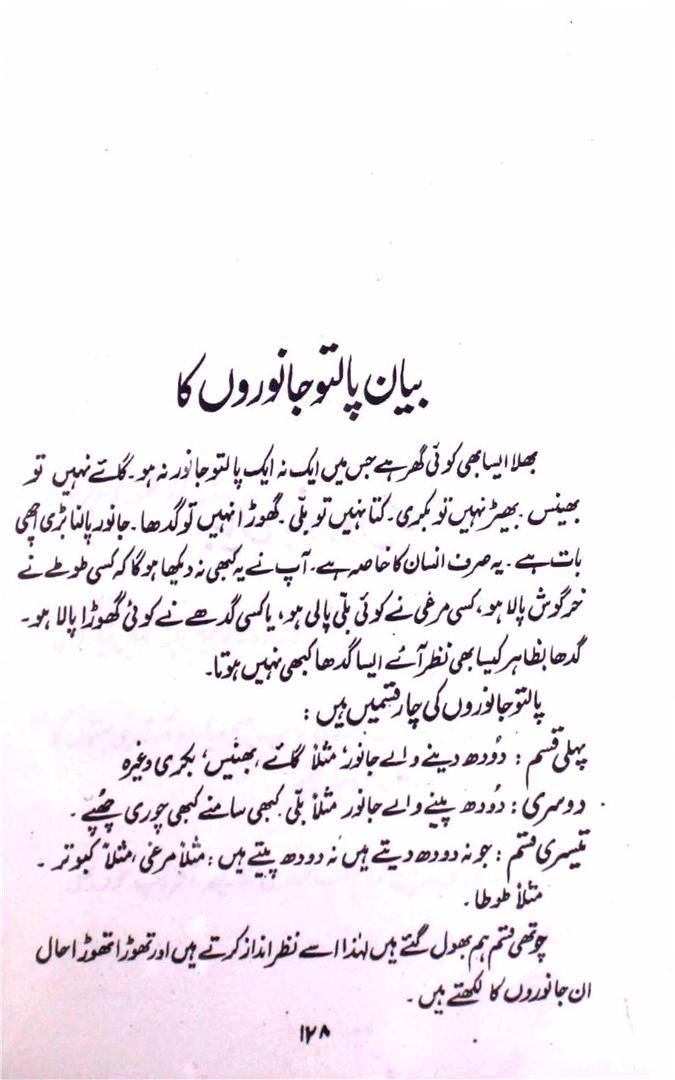 بیان پالتو جانوروں کا
بھلا ایسا بھی کوئی گھر ہے جس میں ایک نہ ایک پالتو جانور نہ ہو۔ گائے نہیں تو
بھینس۔ بھیڑ نہیں تو بکری۔ کتا نہیں تو بلّی۔ گھوڑا نہیں تو گدھا۔ جانور پالنا بڑی اچھی
بات ہے۔ یہ صرف انسان کا خاصہ ہے۔ آپ نے یہ کبھی نہ دیکھا ہوگا کہ کسی طوطے نے
خرگوش پالا ہو، کسی مرغی نے کوئی بلّی پالی ہو، یا کسی گدھے نے کوئی گھوڑا پالا ہو۔
گدھا بظاہر کیسا بھی نظر آئے ایسا گدھا کبھی نہیں ہوتا۔
پالتو جانوروں کی چار قسمیں ہیں :
پہلی قسم : دُودھ دینے والے جانور، مثلاً گائے، بھینس، بکری وغیرہ
دوسری : دُودھ پینے والے جانور مثلاً بلّی۔ کبھی سامنے کبھی چوری چھُپے۔
تیسری قسم : جو نہ دودھ دیتے ہیں نہ دودھ پیتے ہیں : مثلاً مرغی، مثلاً کبوتر۔
مثلاً طوطا۔
چوتھی قسم ہم بھول گئے ہیں لہٰذا اسے نظر انداز کرتے ہیں اور تھوڑا تھوڑا حال
ان جانوروں کا لکھتے ہیں۔
۱۲۸